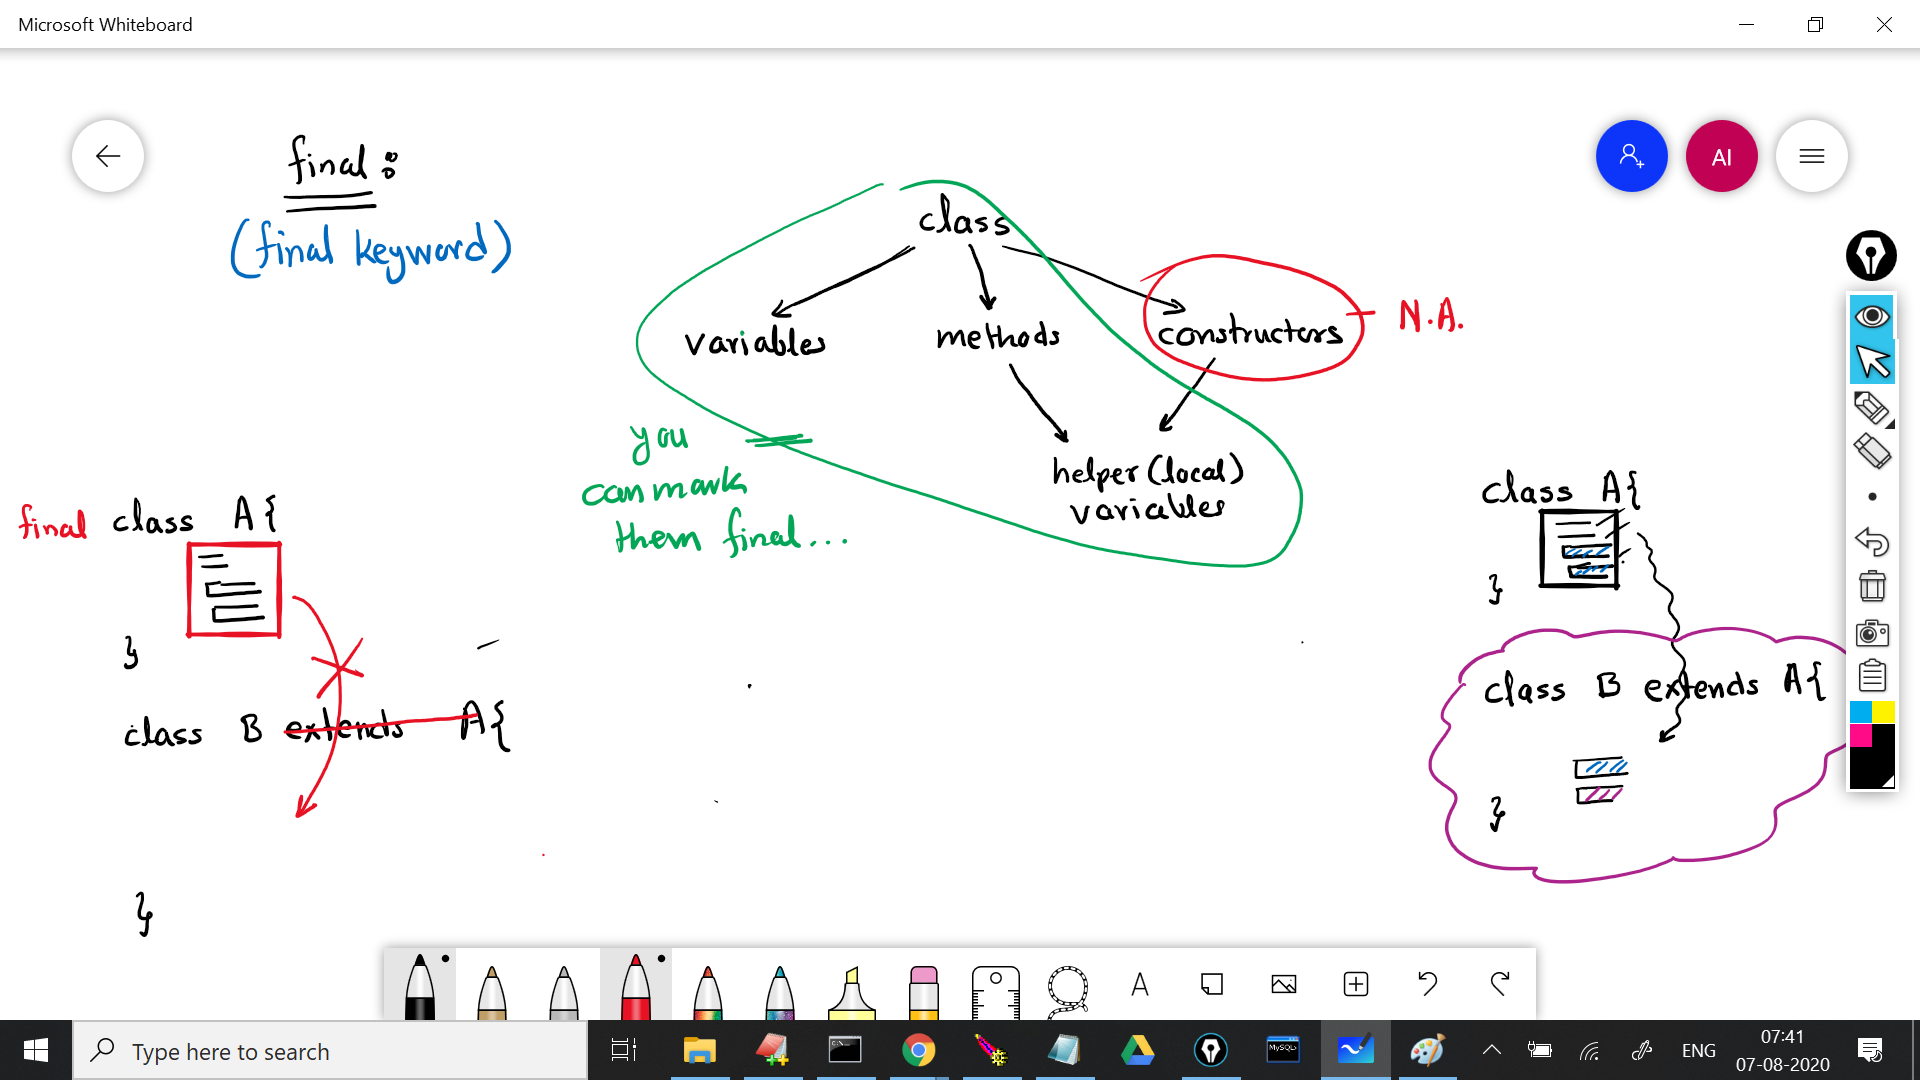 Microsoft Whiteboard
final :
(final keyword)
AI
class
variables
methods
constructors
N.A.
helper (local)
variables
you
can mark
them final...
final class A{
}
class B extends A{
}
class A{
}
class B extends A{
}
A
Type here to search
C:\
MySQL
ENG
07:41
07-08-2020